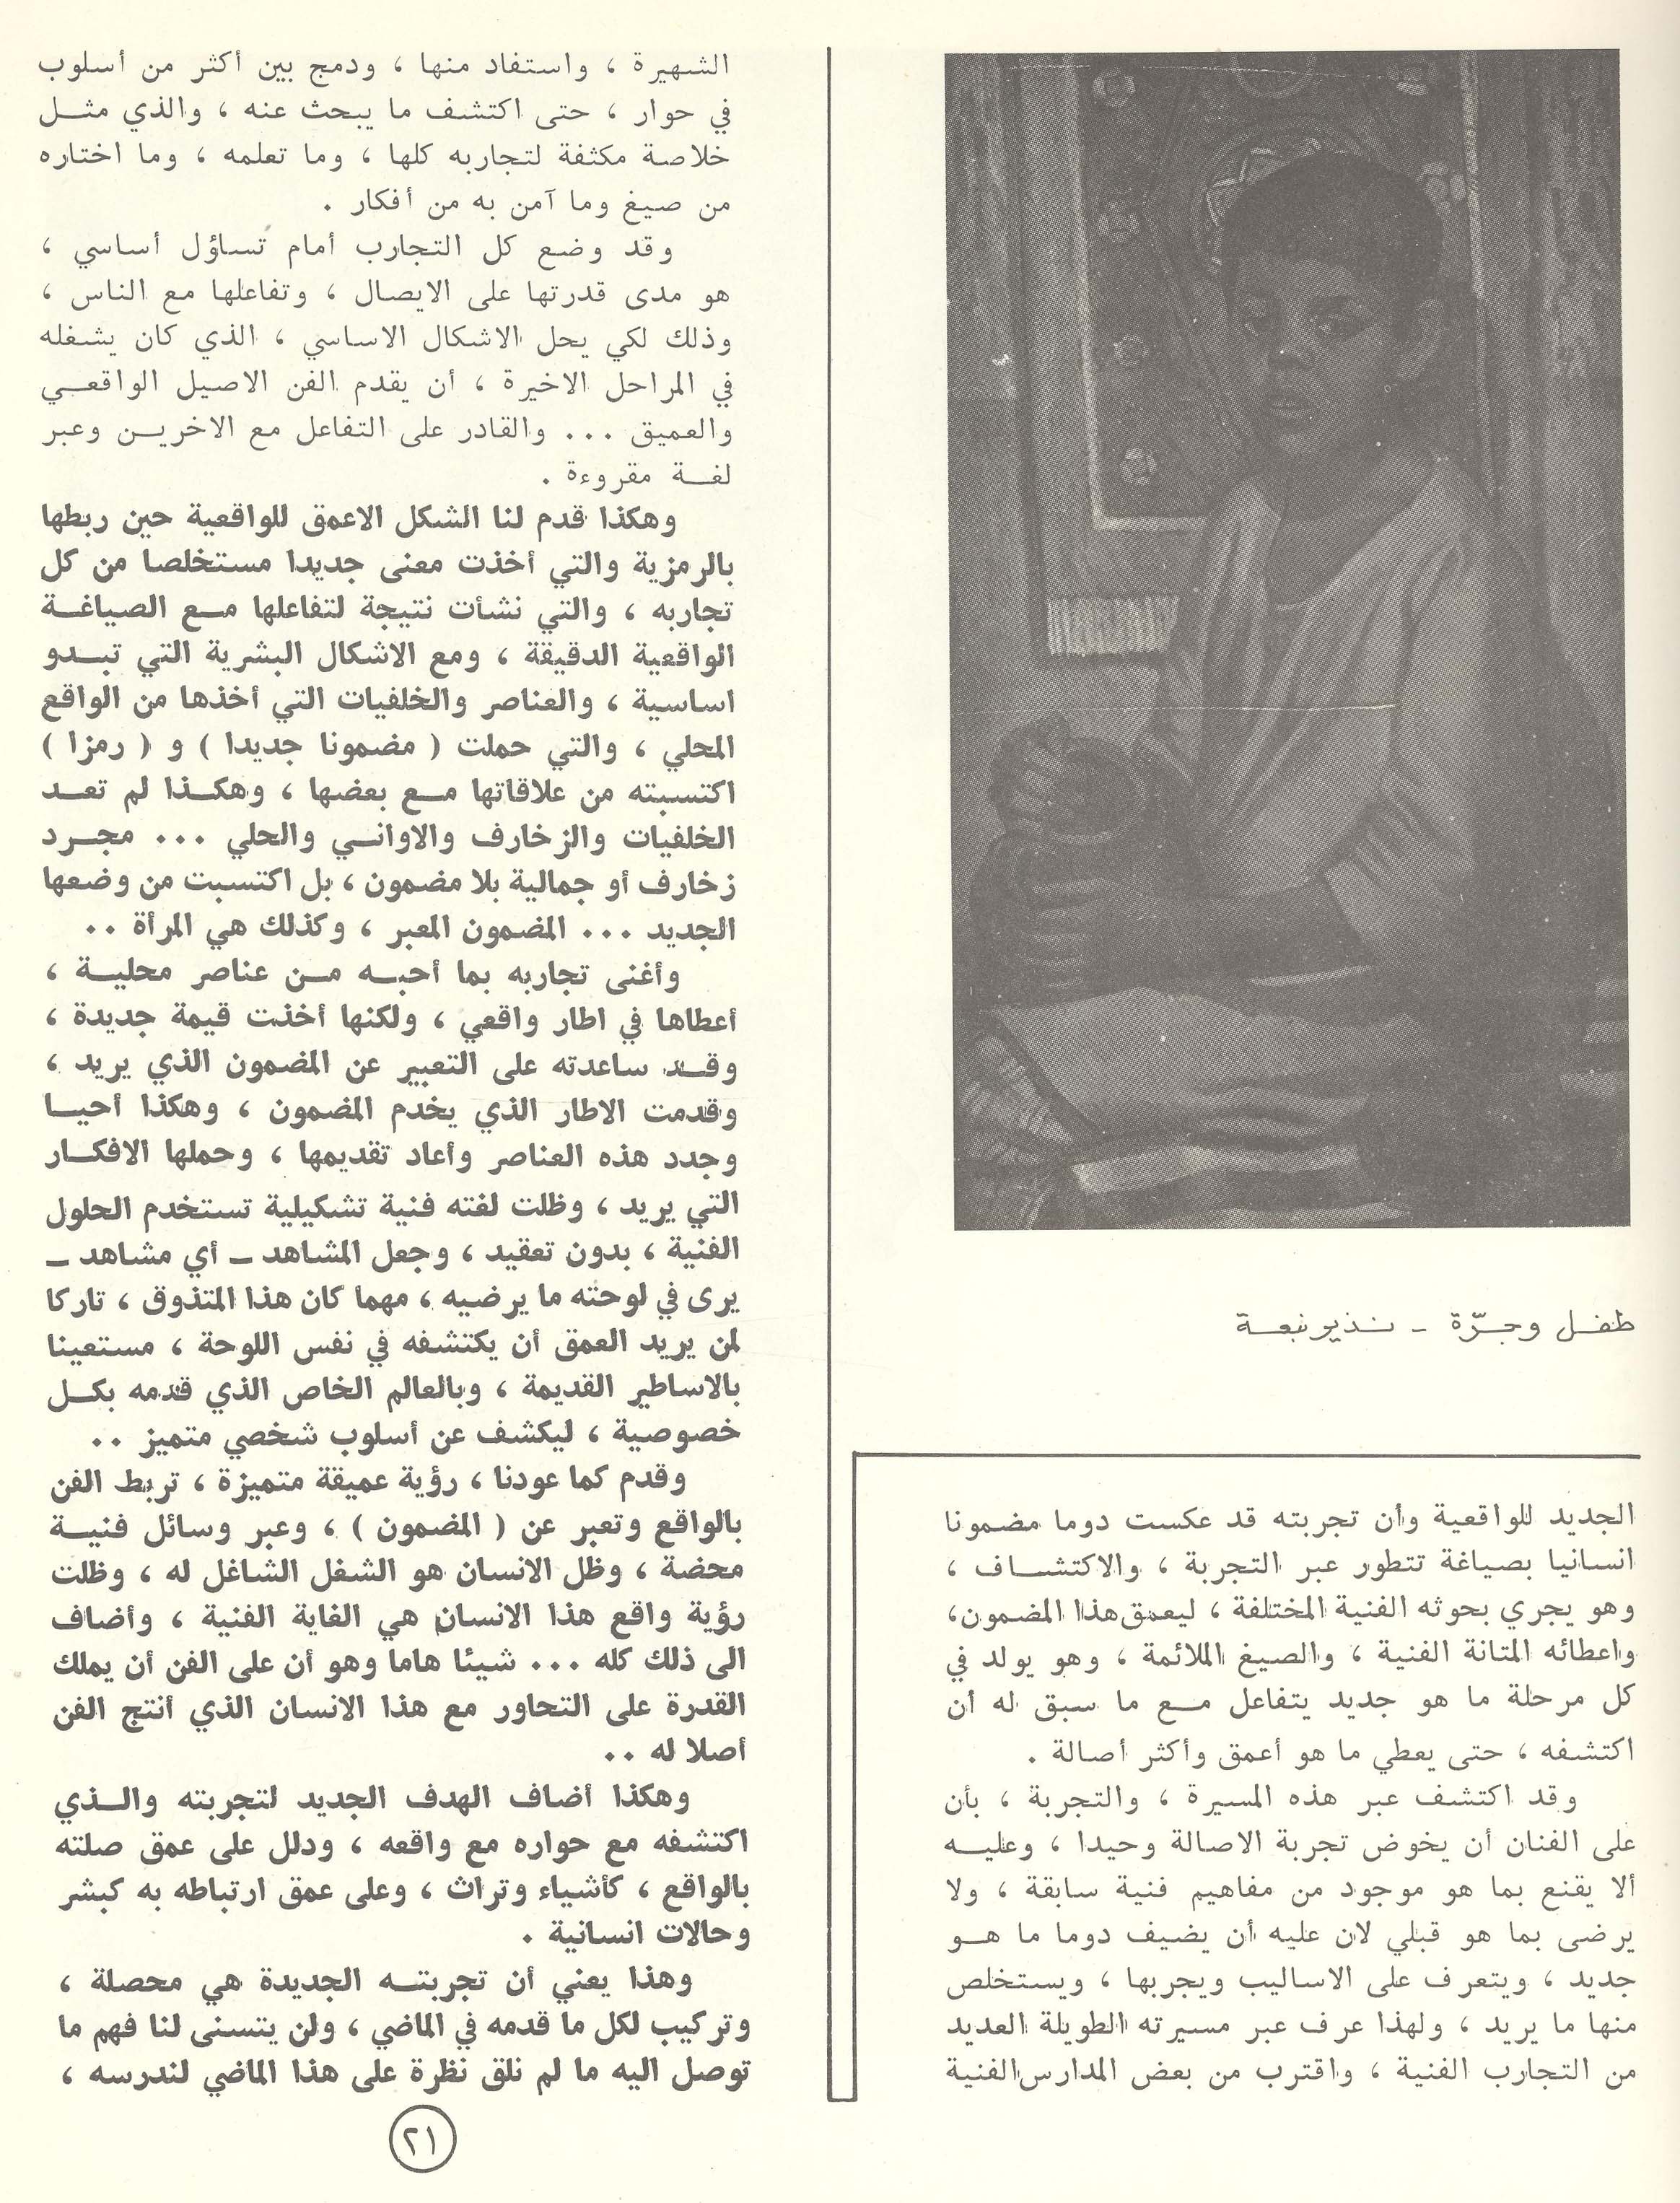 طفل وجرّة - نذير نبعة
الجديد للواقعية وأن تجربته قد عكست دوما مضمونا
انسانيا بصياغة تتطور عبر التجربة ، والاكتشاف ،
وهو يجري بحوثه الفنية المختلفة ، ليعمق هذا المضمون ،
واعطائه المتانة الفنية ، والصيغ الملائمة ، وهو يولد في
كل مرحلة ما هو جديد يتفاعل مع ما سبق له أن
اكتشفه ، حتى يعطي ما هو أعمق وأكثر أصالة .
وقد اكتشف عبر هذه المسيرة ، والتجربة ، بأن
على الفنان أن يخوض تجربة الاصالة وحيدا ، وعليه
ألا يقنع بما هو موجود من مفاهيم فنية سابقة ، ولا
يرضى بما هو قبلي لان عليه أن يضيف دوما ما هو
جديد ، ويتعرف على الاساليب ويجربها ، ويستخلص
منها ما يريد ، ولهذا عرف عبر مسيرته الطويلة العديد
من التجارب الفنية ، واقترب من بعض المدارس الفنية
الشهيرة ، واستفاد منها ، ودمج بين أكثر من أسلوب
في حوار ، حتى اكتشف ما يبحث عنه ، والذي مثل
خلاصة مكثفة لتجاربه كلها ، وما تعلمه ، وما اختاره
من صيغ وما آمن به من أفكار .
وقد وضع كل التجارب أمام تساؤل أساسي ،
هو مدى قدرتها على الايصال ، وتفاعلها مع الناس ،
وذلك لكي يحل الاشكال الاساسي ، الذي كان يشغله
في المراحل الاخيرة ، أن يقدم الفن الاصيل الواقعي
والعميق ... والقادر على التفاعل مع الاخرين وعبر
لغة مقروءة .
وهكذا قدم لنا الشكل الاعمق للواقعية حين ربطها
بالرمزية والتي أخذت معنى جديدا مستخلصا من كل
تجاربه ، والتي نشأت نتيجة لتفاعلها مع الصياغة
الواقعية الدقيقة ، ومع الاشكال البشرية التي تبدو
اساسية ، والعناصر والخلفيات التي أخذها من الواقع
المحلي ، والتي حملت ( مضمونا جديدا ) و ( رمزا )
اكتسبته من علاقاتها مع بعضها ، وهكذا لم تعد
الخلفيات والزخارف والاواني والحلي ... مجرد
زخارف أو جمالية بلا مضمون ، بل اكتسبت من وضعها
الجديد ... المضمون المعبر ، وكذلك هي المرأة ..
وأغنى تجاربه بما أحبه من عناصر محلية ،
أعطاها في اطار واقعي ، ولكنها أخذت قيمة جديدة ،
وقد ساعدته على التعبير عن المضمون الذي يريد ،
وقدمت الاطار الذي يخدم المضمون ، وهكذا أحيا
وجدد هذه العناصر وأعاد تقديمها ، وحملها الافكار
التي يريد ، وظلت لغته فنية تشكيلية تستخدم الحلول
الفنية ، بدون تعقيد ، وجعل المشاهد - أي مشاهد -
يرى في لوحته ما يرضيه ، مهما كان هذا المتذوق ، تاركا
لمن يريد العمق أن يكتشفه في نفس اللوحة ، مستعينا
بالاساطير القديمة ، وبالعالم الخاص الذي قدمه بكل
خصوصية ، ليكشف عن أسلوب شخصي متميز ..
وقدم كما عودنا ، رؤية عميقة متميزة ، تربط الفن
بالواقع وتعبر عن ( المضمون ) ، وعبر وسائل فنية
محضة ، وظل الانسان هو الشغل الشاغل له ، وظلت
رؤية واقع هذا الانسان هي الغاية الفنية ، وأضاف
الى ذلك كله ... شيئا هاما وهو أن على الفن أن يملك
القدرة على التحاور مع هذا الانسان الذي أنتج الفن
أصلا له ..
وهكذا أضاف الهدف الجديد لتجربته والذي
اكتشفه مع حواره مع واقعه ، ودلل على عمق صلته
بالواقع ، كأشياء وتراث ، وعلى عمق ارتباطه به كبشر
وحالات انسانية .
وهذا يعني أن تجربته الجديدة هي محصلة ،
وتركيب لكل ما قدمه في الماضي ، ولن يتسنى لنا فهم ما
توصل اليه ما لم نلق نظرة على هذا الماضي لندرسه ،
٢١